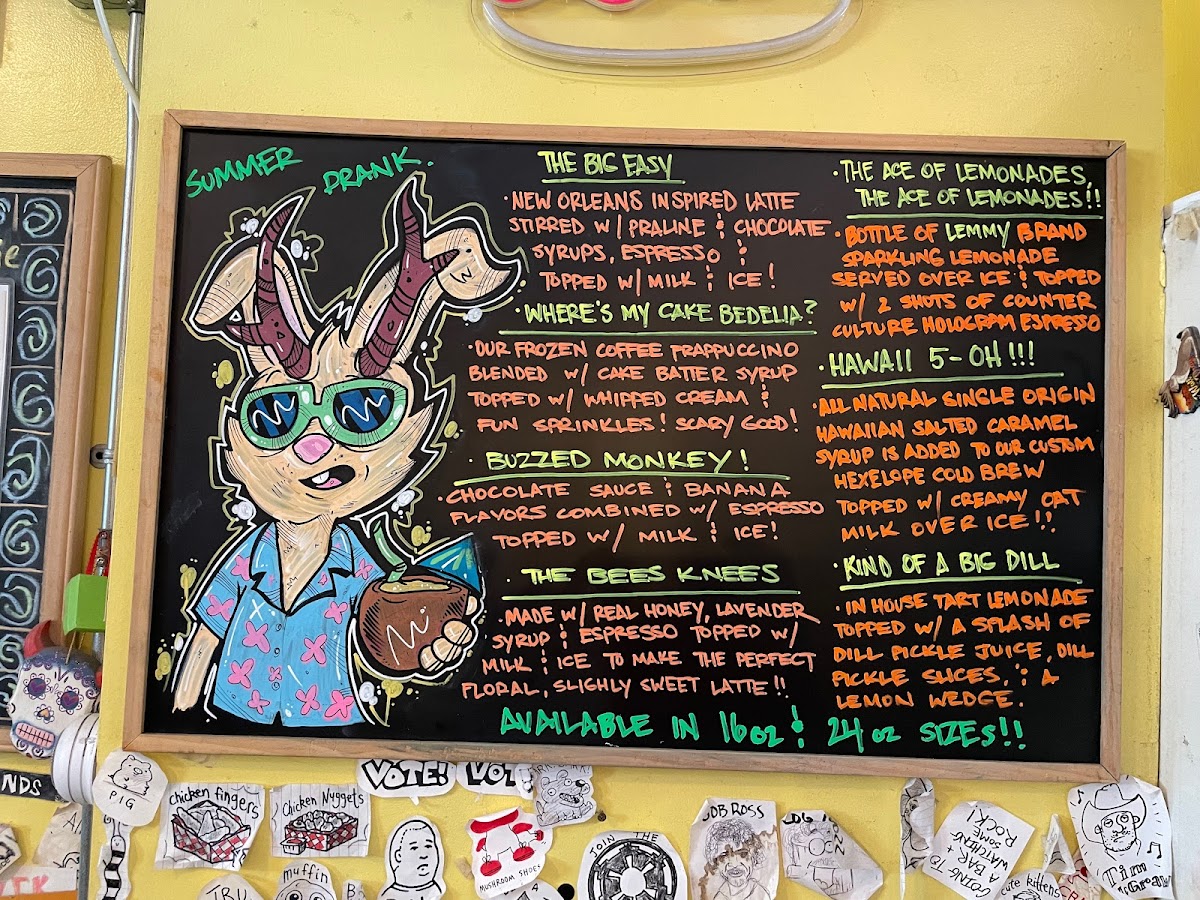 SUMMER DRANK.
THE BIG EASY
· NEW ORLEANS INSPIRED LATTE
STIRRED W/ PRALINE & CHOCOLATE
SYRUPS, ESPRESSO &
TOPPED W/ MILK & ICE!
· WHERE'S MY CAKE BEDELIA?
· OUR FROZEN COFFEE FRAPPUCCINO
BLENDED W/ CAKE BATTER SYRUP
TOPPED W/ WHIPPED CREAM &
FUN SPRINKLES! SCARY GOOD!
· BUZZED MONKEY!
· CHOCOLATE SAUCE & BANANA
FLAVORS COMBINED W/ ESPRESSO
TOPPED W/ MILK & ICE!
· THE BEES KNEES
· MADE W/ REAL HONEY, LAVENDER
SYRUP & ESPRESSO TOPPED W/
MILK & ICE TO MAKE THE PERFECT
FLORAL, SLIGHLY SWEET LATTE!!
· THE ACE OF LEMONADES,
THE ACE OF LEMONADES!!
· BOTTLE OF LEMMY BRAND
SPARKLING LEMONADE
SERVED OVER ICE & TOPPED
W/ 2 SHOTS OF COUNTER
CULTURE HOLOGRAM ESPRESSO
· HAWAII 5-OH!!!
· ALL NATURAL SINGLE ORIGIN
HAWAIIAN SALTED CARAMEL
SYRUP IS ADDED TO OUR CUSTOM
HEXELOPE COLD BREW
TOPPED W/ CREAMY OAT
MILK OVER ICE!?
· KIND OF A BIG DILL
· IN HOUSE TART LEMONADE
TOPPED W/ A SPLASH OF
DILL PICKLE JUICE, DILL
PICKLE SLICES, & A
LEMON WEDGE.
AVAILABLE IN 16oz & 24oz SIZES!!
NDS
PIG
chicken fingers
Chicken Nuggets
VOTE!
muffin
MUSHROOM SHOES
JOIN THE
BOB ROSS
GOING TO
A BAR +
WATCHIN'
SOME
ROCK!
cute kittens
Tim
McGraw